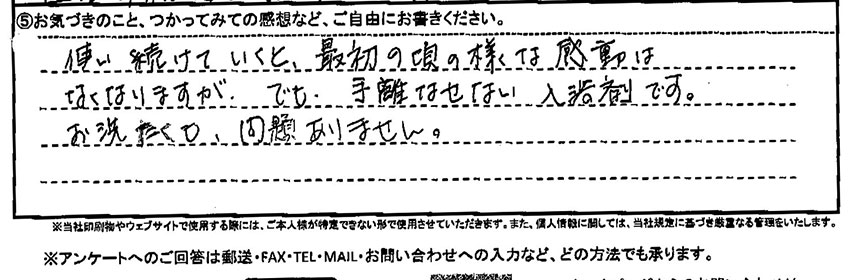 ⑤お気づきのこと、つかってみての感想など、ご自由にお書きください。
使い続けていくと、最初の頃の様な感動は
なくなりますが、でも、手離なせない入浴剤です。
お洗たくも、問題ありません。
※当社印刷物やウェブサイトで使用する際には、ご本人様が特定できない形で使用させていただきます。また、個人情報に関しては、当社規定に基づき厳重なる管理をいたします。
※アンケートへのご回答は郵送・FAX・TEL・MAIL・お問い合わせへの入力など、どの方法でも承ります。